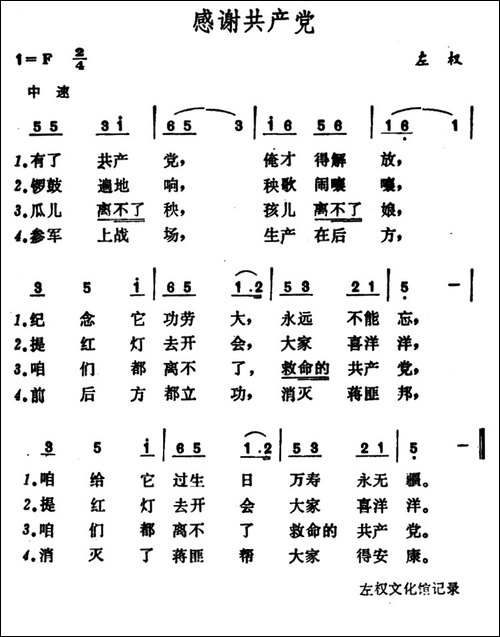 感谢共产党
1=F 2/4 左权
中速
5 5 3 i | 6 5 3 | i 6 5 6 | 1 6 1 |
1.有了 共产 党， 俺才 得解 放，
2.锣鼓 遍地 响， 秧歌 闹嚷 嚷，
3.瓜儿 离不了 秧， 孩儿 离不了 娘，
4.参军 上战 场， 生产 在后 方，
3 5 i | 6 5 1.2 | 5 3 2 1 | 5 － |
1.纪 念 它 功劳 大， 永远 不能 忘，
2.提 红 灯 去开 会， 大家 喜洋 洋，
3.咱 们 都 离不 了， 救命的 共产 党，
4.前 后 方 都立 功， 消灭 蒋匪 邦，
3 5 i | 6 5 1.2 | 5 3 2 1 | 5 － ‖
1.咱 给 它 过生 日 万寿 永无 疆。
2.提 红 灯 去开 会 大家 喜洋 洋。
3.咱 们 都 离不 了 救命的 共产 党。
4.消 灭 了 蒋匪 帮 大家 得安 康。
左权文化馆记录